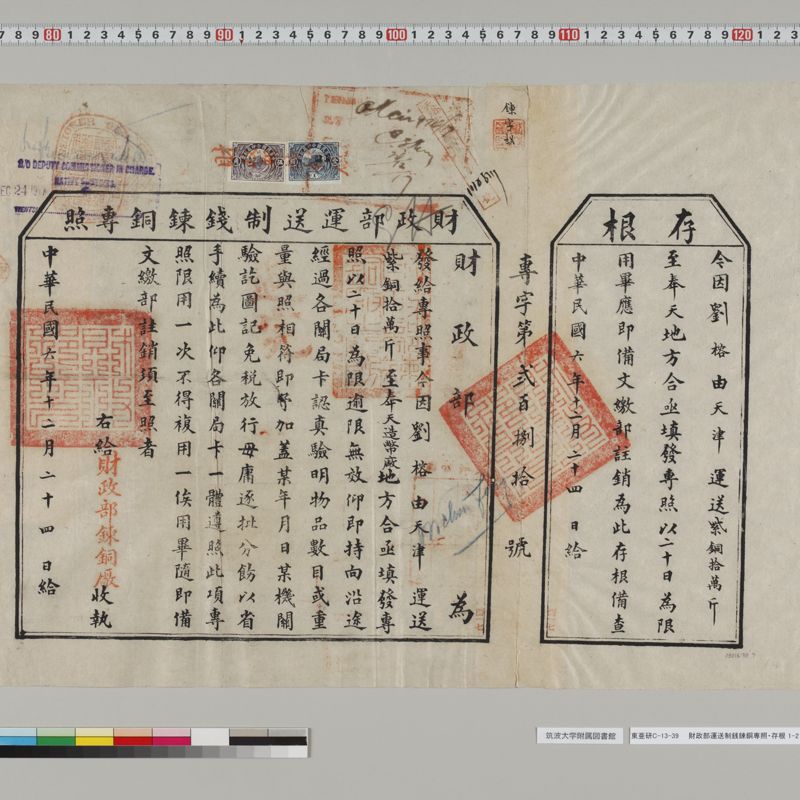 存根
令因劉榕由天津運送紫銅拾萬斤
至奉天地方合亟填發專照以二十日為限
用畢應即備文繳部註銷為此存根備查
中華民國六年十二月二十四日給
專字第貳百捌拾號
財政部運送制錢鍊銅專照
財政部為
發給專照事今因劉榕由天津運送
紫銅拾萬斤至奉天造幣廠地方合亟填發專
照以二十日為限逾限無效仰即持向沿途
經過各關局卡認真驗明物品數目或重
量與照相符即予加蓋某年月日某機關
驗訖圖記免稅放行毋庸逐批分飭以省
手續為此仰各關局卡一體遵照此項專
照限用一次不得複用一俟用畢隨即備
文繳部註銷須至照者
右給財政部鍊銅廠收執
中華民國六年十二月二十四日給
鍊字號
S/O DEPUTY COMMISSIONER IN CHARGE.
NATIVE CUSTOMS.
DEC 24
筑波大学附属図書館
東亜研C-13-39 財政部運送制銭鍊銅専照・存根 1-2
80
90
100
110
120